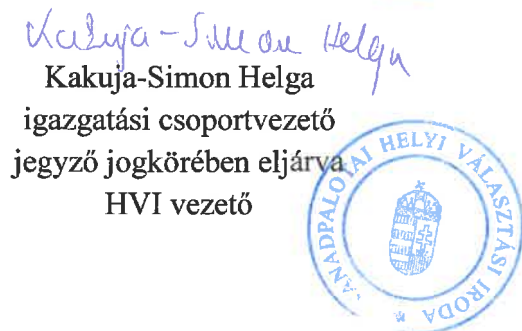 Kakuja-Simon Helga
Kakuja-Simon Helga
igazgatási csoportvezető
jegyző jogkörében eljárva
HVI vezető
ANÁDPALOTAI HELYI VÁLASZTÁSI IRODA *